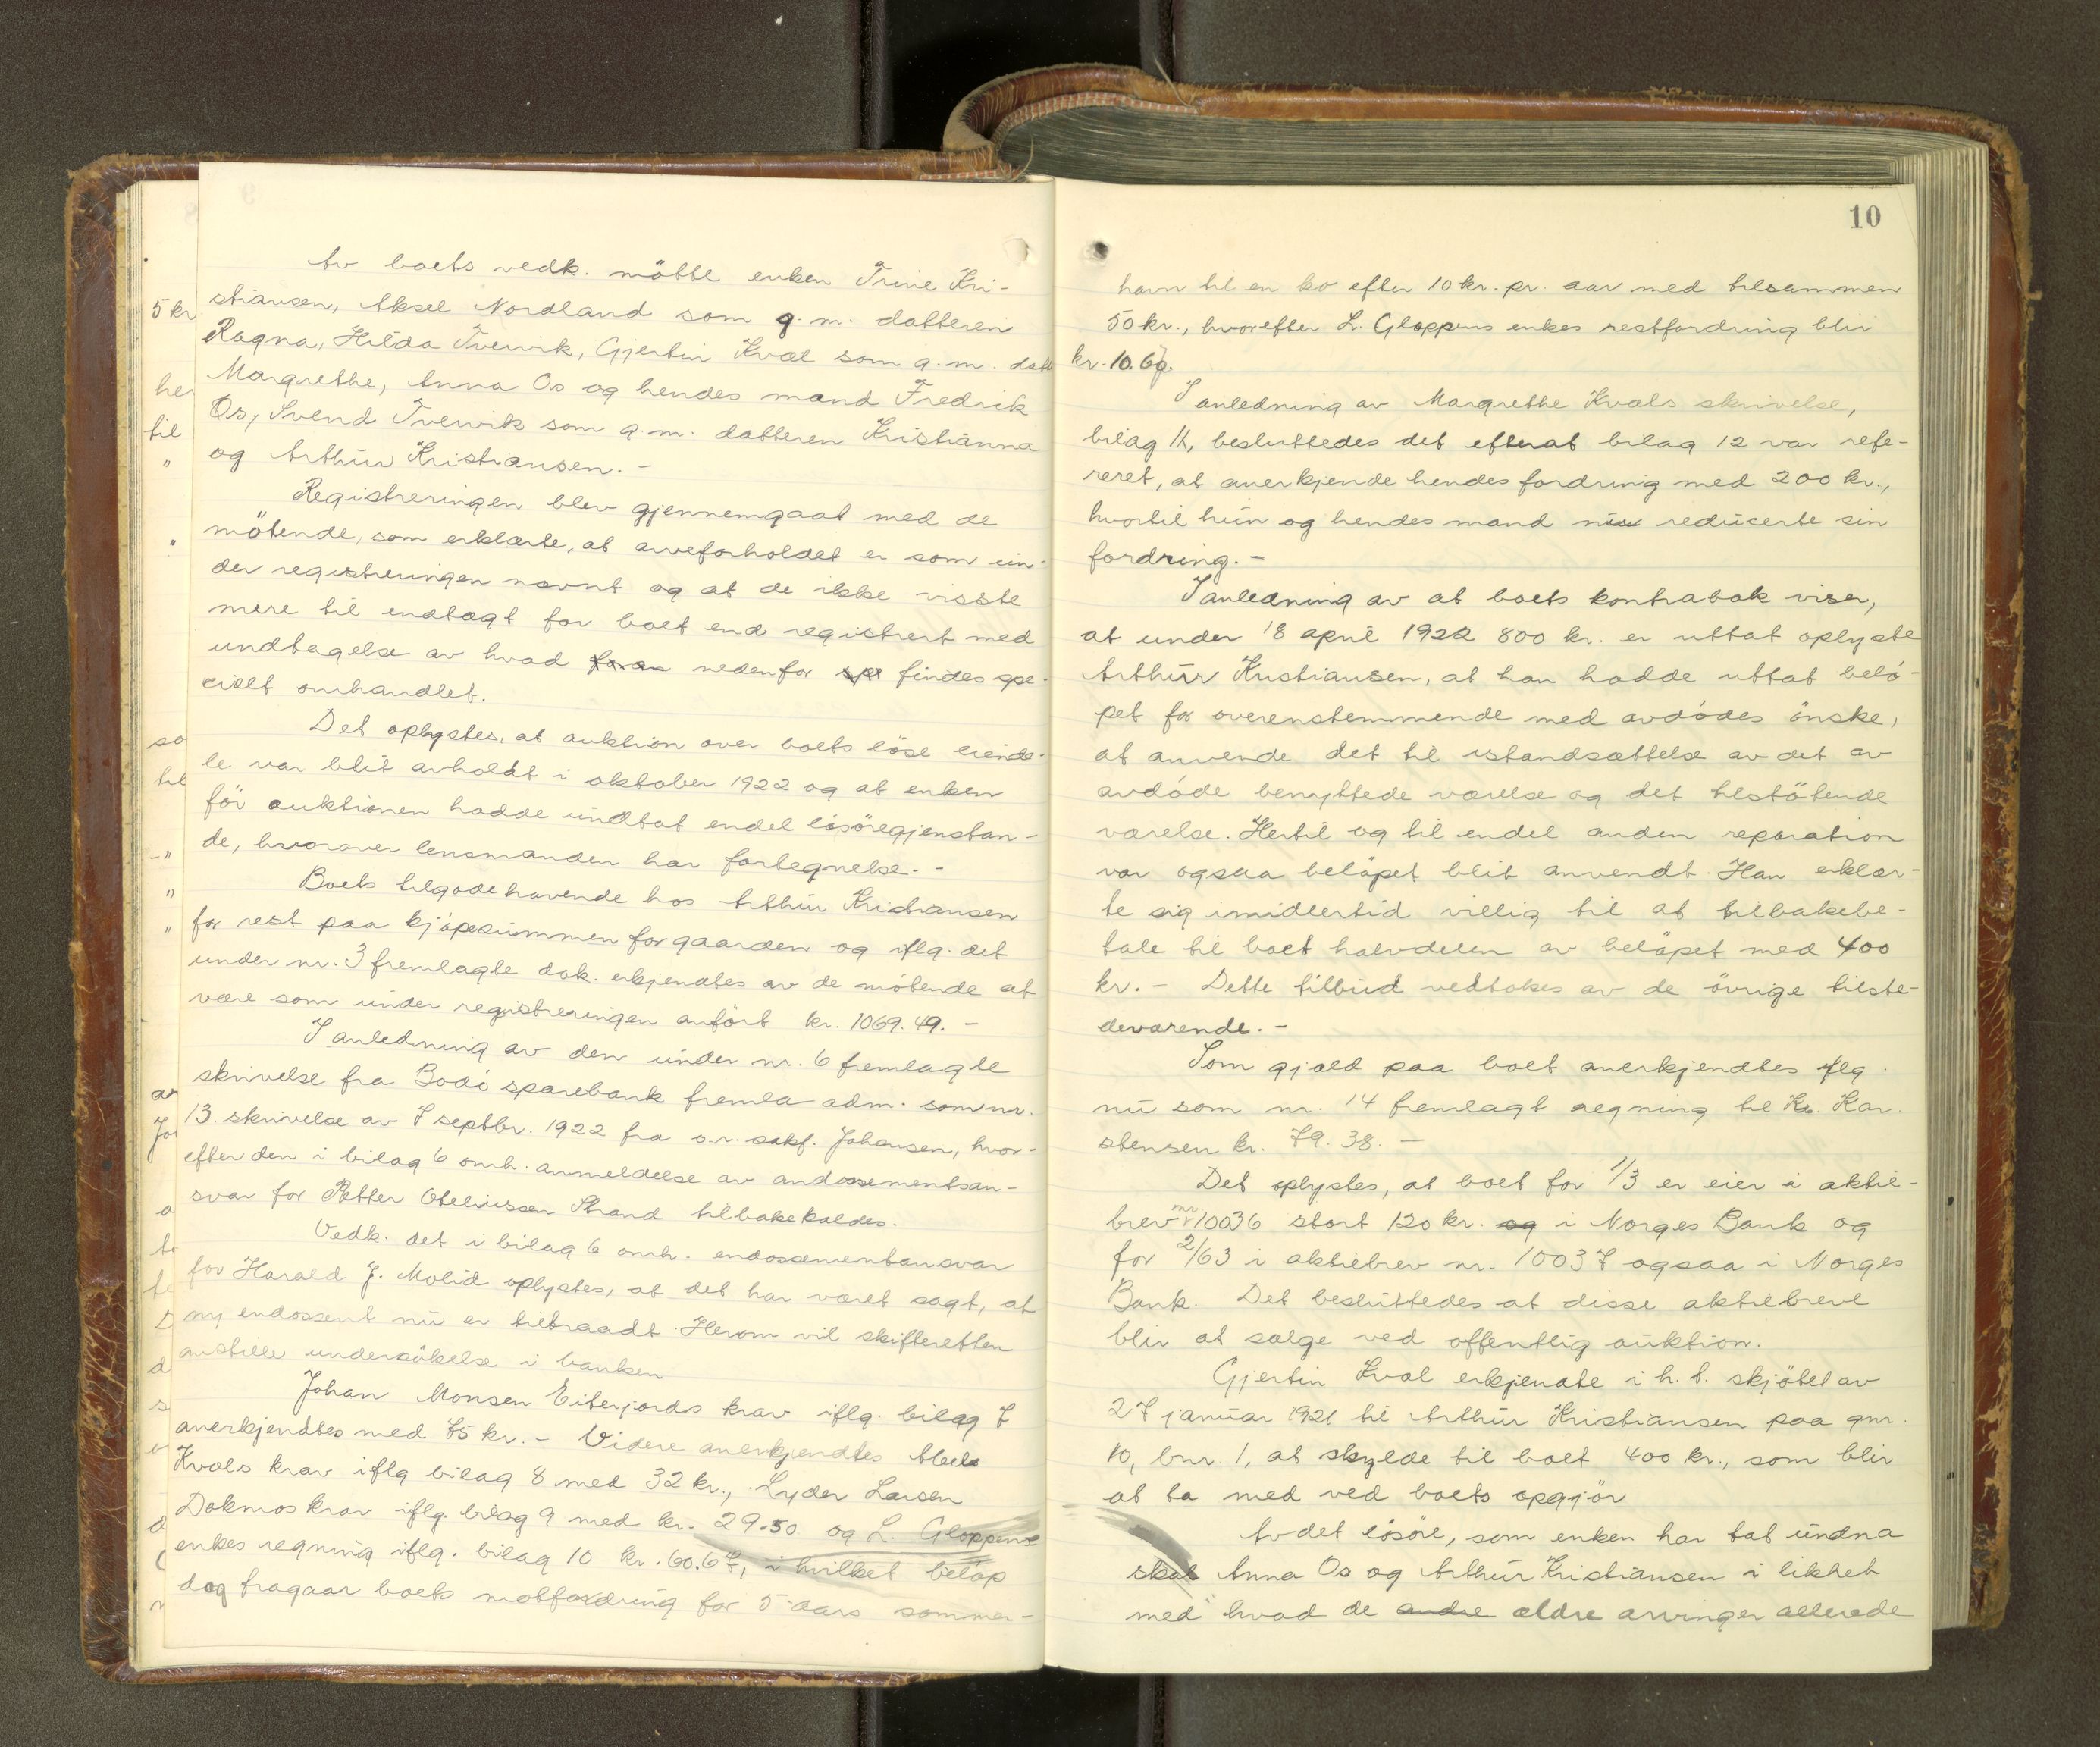 Av boets vedk. mötte enken Trine Kri-
stiansen, Aksel Nordland som g. m. datteren
Ragna, Hilda Tvervik, Gjertin Kval som g. m. datt
Margrethe, Anna Os og hendes mand Fredrik
Os, Svend Tvervik som g. m. datteren Kristianna
og Arthur Kristiansen. -
Registreringen blev gjennemgaat med de
mötende, som erklærte, at arveforholdet er som un-
der registreringen nævnt og at de ikke visste
mere til endtægt for boet end registrert med
undtagelse av hvad foran nedenfor spe findes spe-
cielt omhandlet.
Det oplystes, at auktion over boets löse eiende-
le var blit avholdt i oktober 1922 og at enken
för auktionen hadde undtat endel lösöregjenstan-
de, hvorover lensmanden har fortegnelse. -
Boets tilgodehavende hos Arthur Kristiansen
for rest paa kjöpesummen for gaarden og iflg. det
under nr. 3 fremlagte dok. erkjendtes av de mötende at
være som under registreringen anfört kr. 1069.49. -
I anledning av den under nr. 6 fremlagte
skrivelse fra Bodö sparebank fremla adm. som nr.
13. skrivelse av 7 septbr. 1922 fra o.r. sakf. Johansen, hvor-
efter den i bilag 6 omh. anmeldelse av andossementsan-
svar for Petter Oteliussen Strand tilbakekaldes.
Vedk. det i bilag 6 omh. endossementansvar
for Harald J. Molid oplystes, at det har været sagt, at
ny endossent nu er tiltraadt. Herom vil skifteretten
anstille undersökelse i banken
Johan Monsen Eiterjords krav iflg. bilag 7
anerkjendtes med 75 kr. - Videre anerkjendtes
Kvals krav iflg bilag 8 med 32 kr., Lyder Larsen
Dokmos krav iflg. bilag 9 med kr. 29.50 og L. Gloppens
enkes regning iflg. bilag 10 kr. 60.67, i hvilket belöp
dog fragaar boets motfordring for 5 aars sommer-
10
havn til en ko efter 10 kr. pr. aar med tilsammen
50 kr., hvorefter L. Gloppens enkes restfordring blir
kr. 10.67.
I anledning av Margrethe Kvals skrivelse,
bilag 11, besluttedes det efterat bilag 12 var refe-
reret, at anerkjende hendes fordring med 200 kr.,
hvortil hun og hendes mand nu reducerte sin
fordring. -
I anledning av at boets kontrabok viser,
at under 18 april 1922 800 kr. er uttat oplyste
Arthur Kristiansen, at han hadde uttat belö-
pet for overenstemmende med avdödes önske,
at anvende det til istandsættelse av det av
avdöde benyttede værelse og det tilstötende
værelse. Hertil og til endel anden reparation
var ogsaa belöpet blit anvendt. Han erklær-
te sig imidlertid villig til at tilbakebe-
tale til boet halvdelen av belöpet med 400
kr. - Dette tilbud vedtokes av de övrige tilste-
deværende. -
Som gjæld paa boet anerkjendtes iflg.
nu som nr. 14 fremlagt regning til Kr. Kar.
stensen kr. 79.38. -
Det oplystes, at boet for 1/3 er eier i aktie-
brev nr. 10036 stort 120 kr. og i Norges Bank og
for 2/63 i aktiebrev nr. 10037 ogsaa i Norges
Bank. Det besluttedes at disse aktiebreve
blir at sælge ved offentlig auktion.
Gjertin Kval erkjendte i h. t. skjötet av
27 januar 1921 til Arthur Kristiansen paa gnr.
10, bnr. 1, at skylde til boet 400 kr., som blir
at ta med ved boets opgjör
Av det lösöre, som enken har tat undna
skal Anna Os og Arthur Kristiansen i likhet
med hvad de andre ældre arvinger allerede